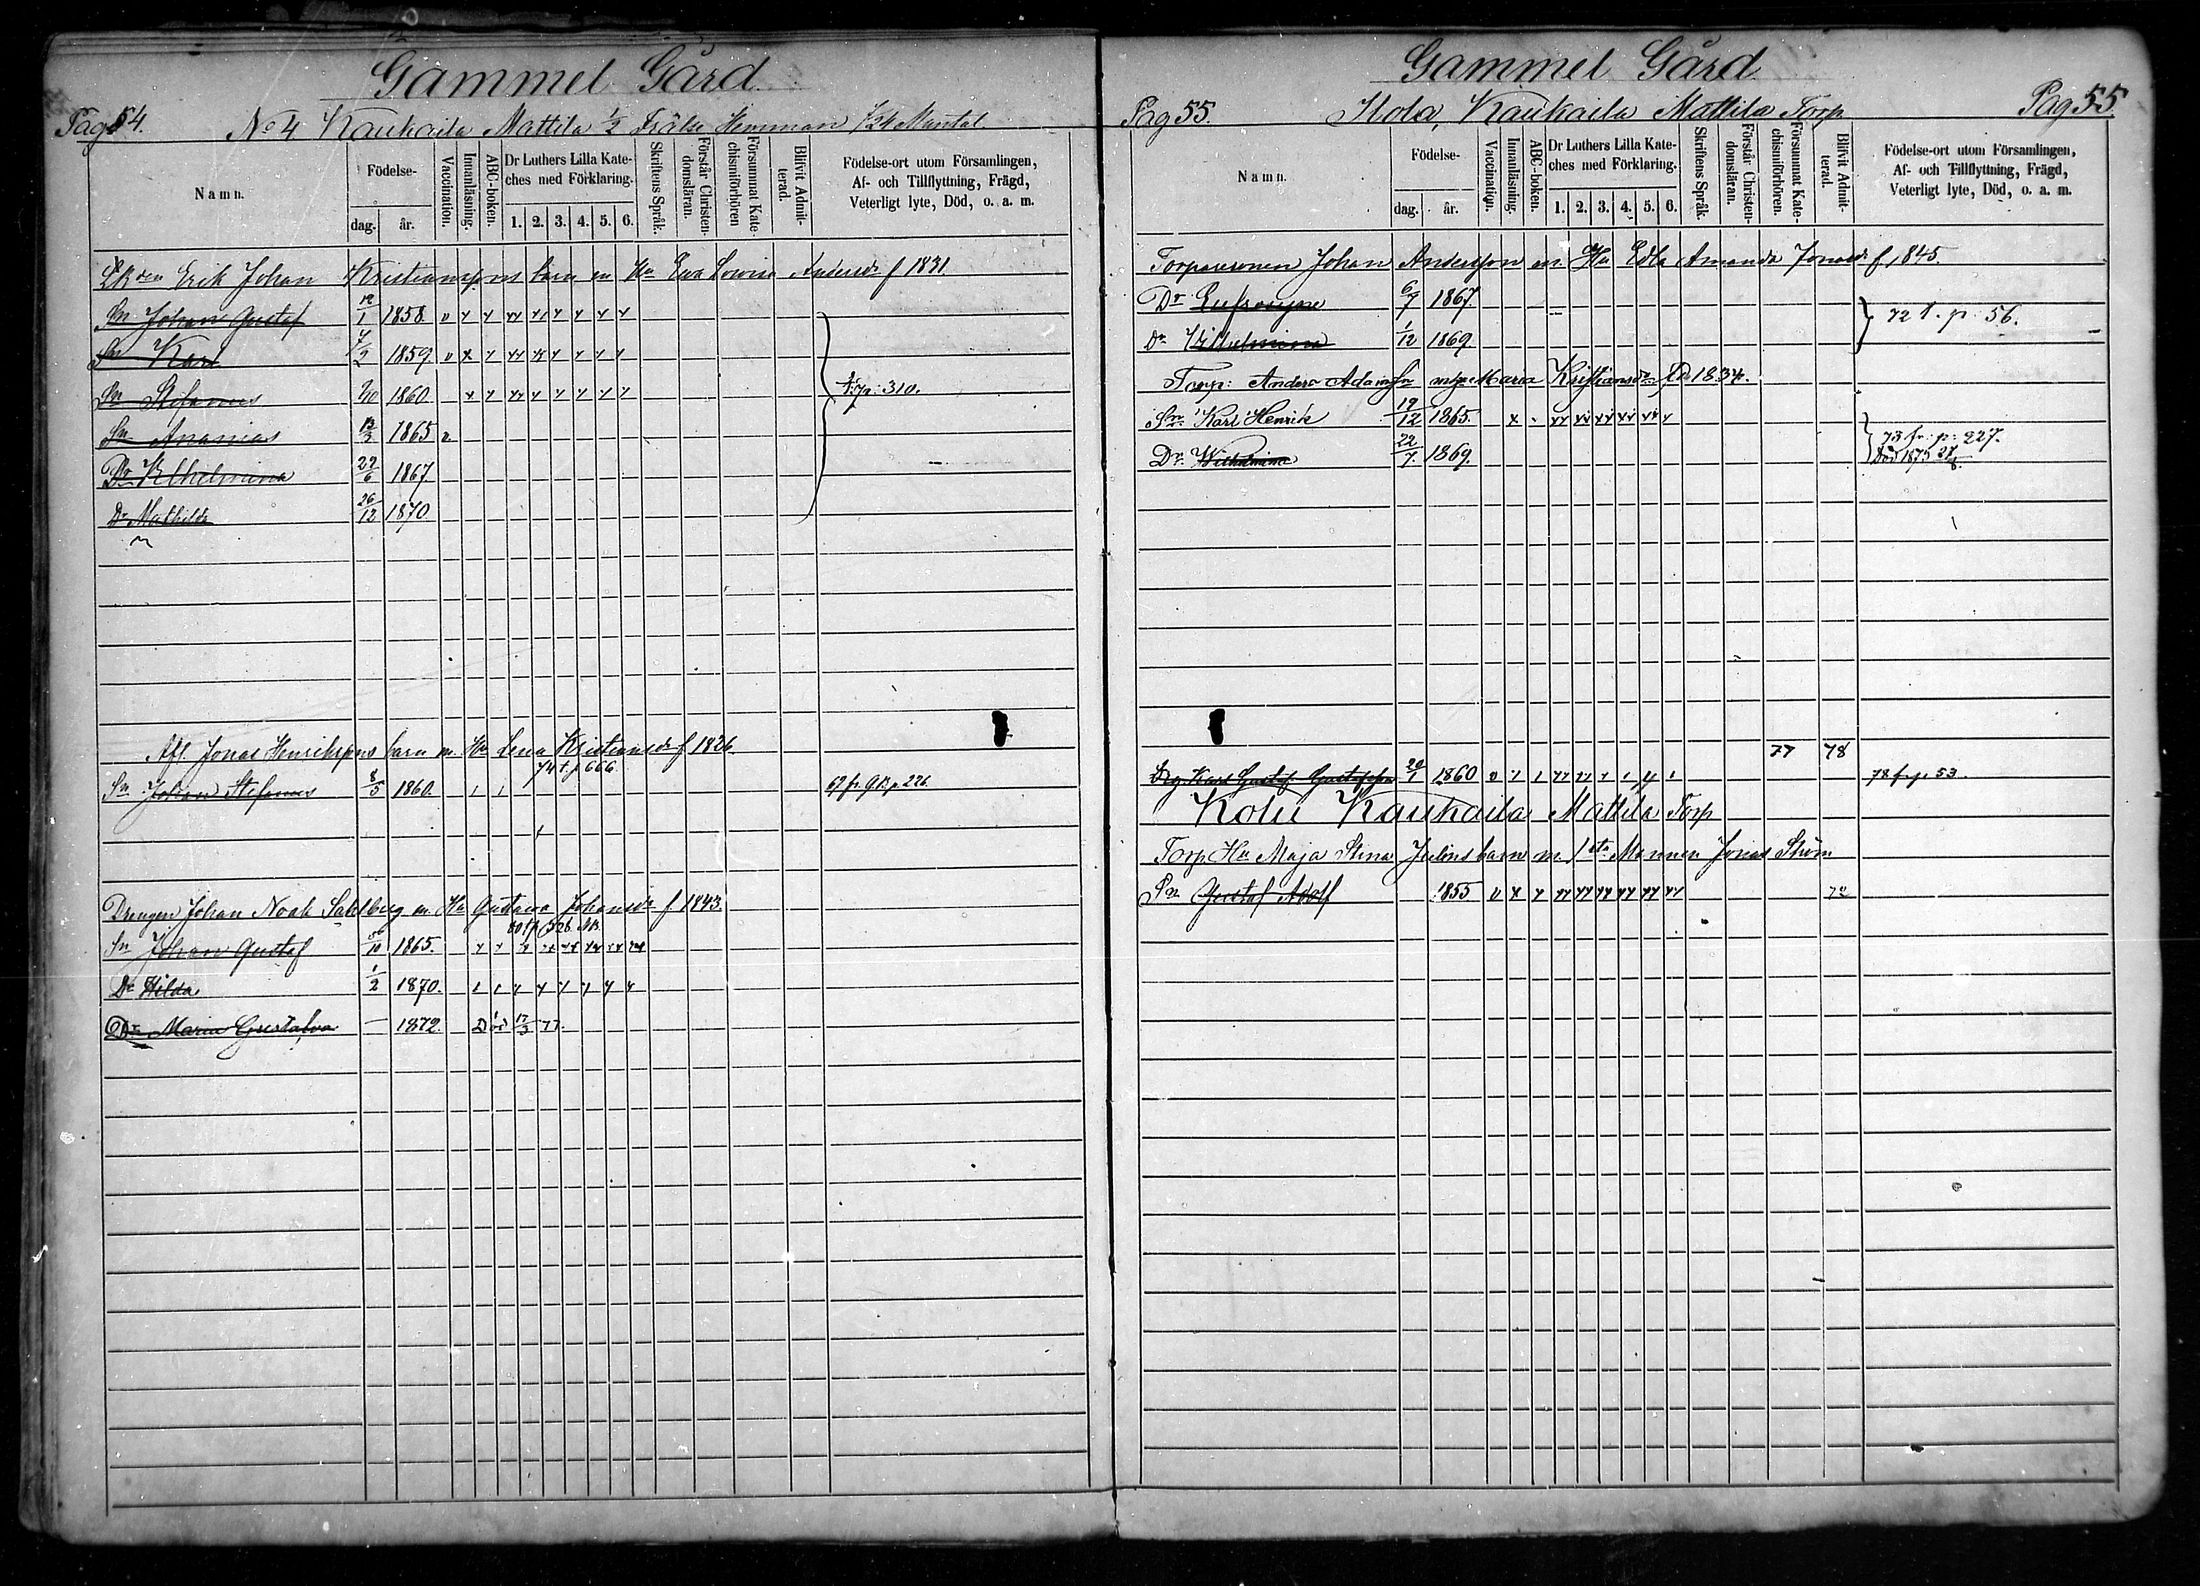 Gammel Gård.
Pag 54.
No 4 Kauhaila Mattila 1/2 Frälse Hemman 1/24 Mantal.
Namn.
Födelse-
dag.
år.
Vaccination.
Innanläsning.
ABC-boken.
Dr Luthers Lilla Kate-
ches med Förklaring.
1. 2. 3. 4. 5. 6.
Skriftens Språk.
Förstår Christen-
domsläran.
Försummat Kate-
chismiförhören
Blifvit Admit-
terad.
Födelse-ort utom Församlingen,
Af- och Tillflyttning, Frägd,
Veterligt lyte, Död, o. a. m.
Erik Johan Kristianssons barn m Hu Eva Lovisa Andersdr f 1831
Sn Johan Gustaf 19/1 1858. v
Sn Karl 7/2 1859. v
Sn Stefanus 1860. t. p: 310.
Sn Ananias 13/3 1865
Dr Vilhelmina 29/6 1867.
Dr Mathilda 26/12 1870.
Afl. Jonas Henrikssons barn m. Hu Lena Kristiansdr f 1826.
74 t. p 666.
Sn Johan Stefanus 8/5 1860. 67 fr. p. 226.
Drengen Johan Noak Sahlberg m. Hu Gustava Johansdr f 1843.
80 t p 526
Sn Johan Gustaf 1865.
Dr Hilda 1/2 1870.
Dr Maria Gustafva — 1872. Död 17/3 77.
Gammel Gård
Pag 55.
Ilola, Kauhaila Mattila Torp
Pag 55.
Namn.
Födelse-
dag.
år.
Vaccination.
Innanläsning.
ABC-boken.
Dr Luthers Lilla Kate-
ches med Förklaring.
1. 2. 3. 4. 5. 6.
Skriftens Språk.
Förstår Christen-
domsläran.
Försummat Kate-
chismiförhören.
Blifvit Admit-
terad.
Födelse-ort utom Församlingen,
Af- och Tillflyttning, Frägd,
Veterligt lyte, Död, o. a. m.
Johan Andersson m. Hu Edla Amanda Jonasdr f. 1845.
Dr Eufrosyne 6/7 1867.
72 t. p. 56.
Dr Vilhelmina 1/12 1869.
Torp: Anders Adamsson Maria Kristiansdr f 1834.
Sn Karl Henrik 19/12 1865.
73 fr. p: 227.
Dr. Wilhelmina 22/7. 1869. Död 1875
77 78
Drg. Karl Gustaf Gustafsson 20/1 1860 v 78 fr p. 53.
Kolu Kauhaila Mattila Torp
Torp. Hu Maja Stina Julius barn m. 1sta Mannen Jonas Ström
Sn Gustaf Adolf 1855 v 72